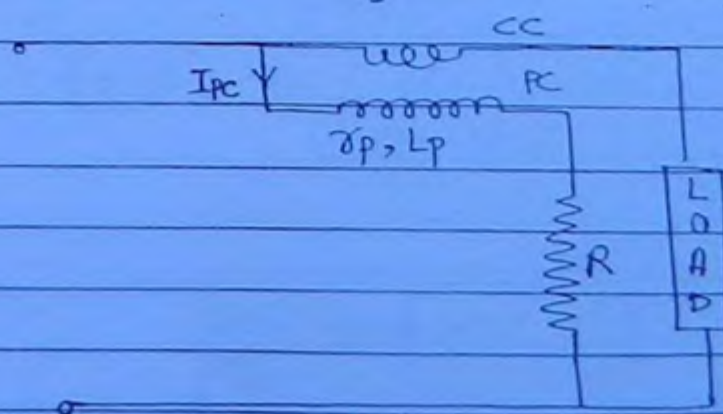 CC
IPC
PC
rp, Lp
R
L
O
A
D